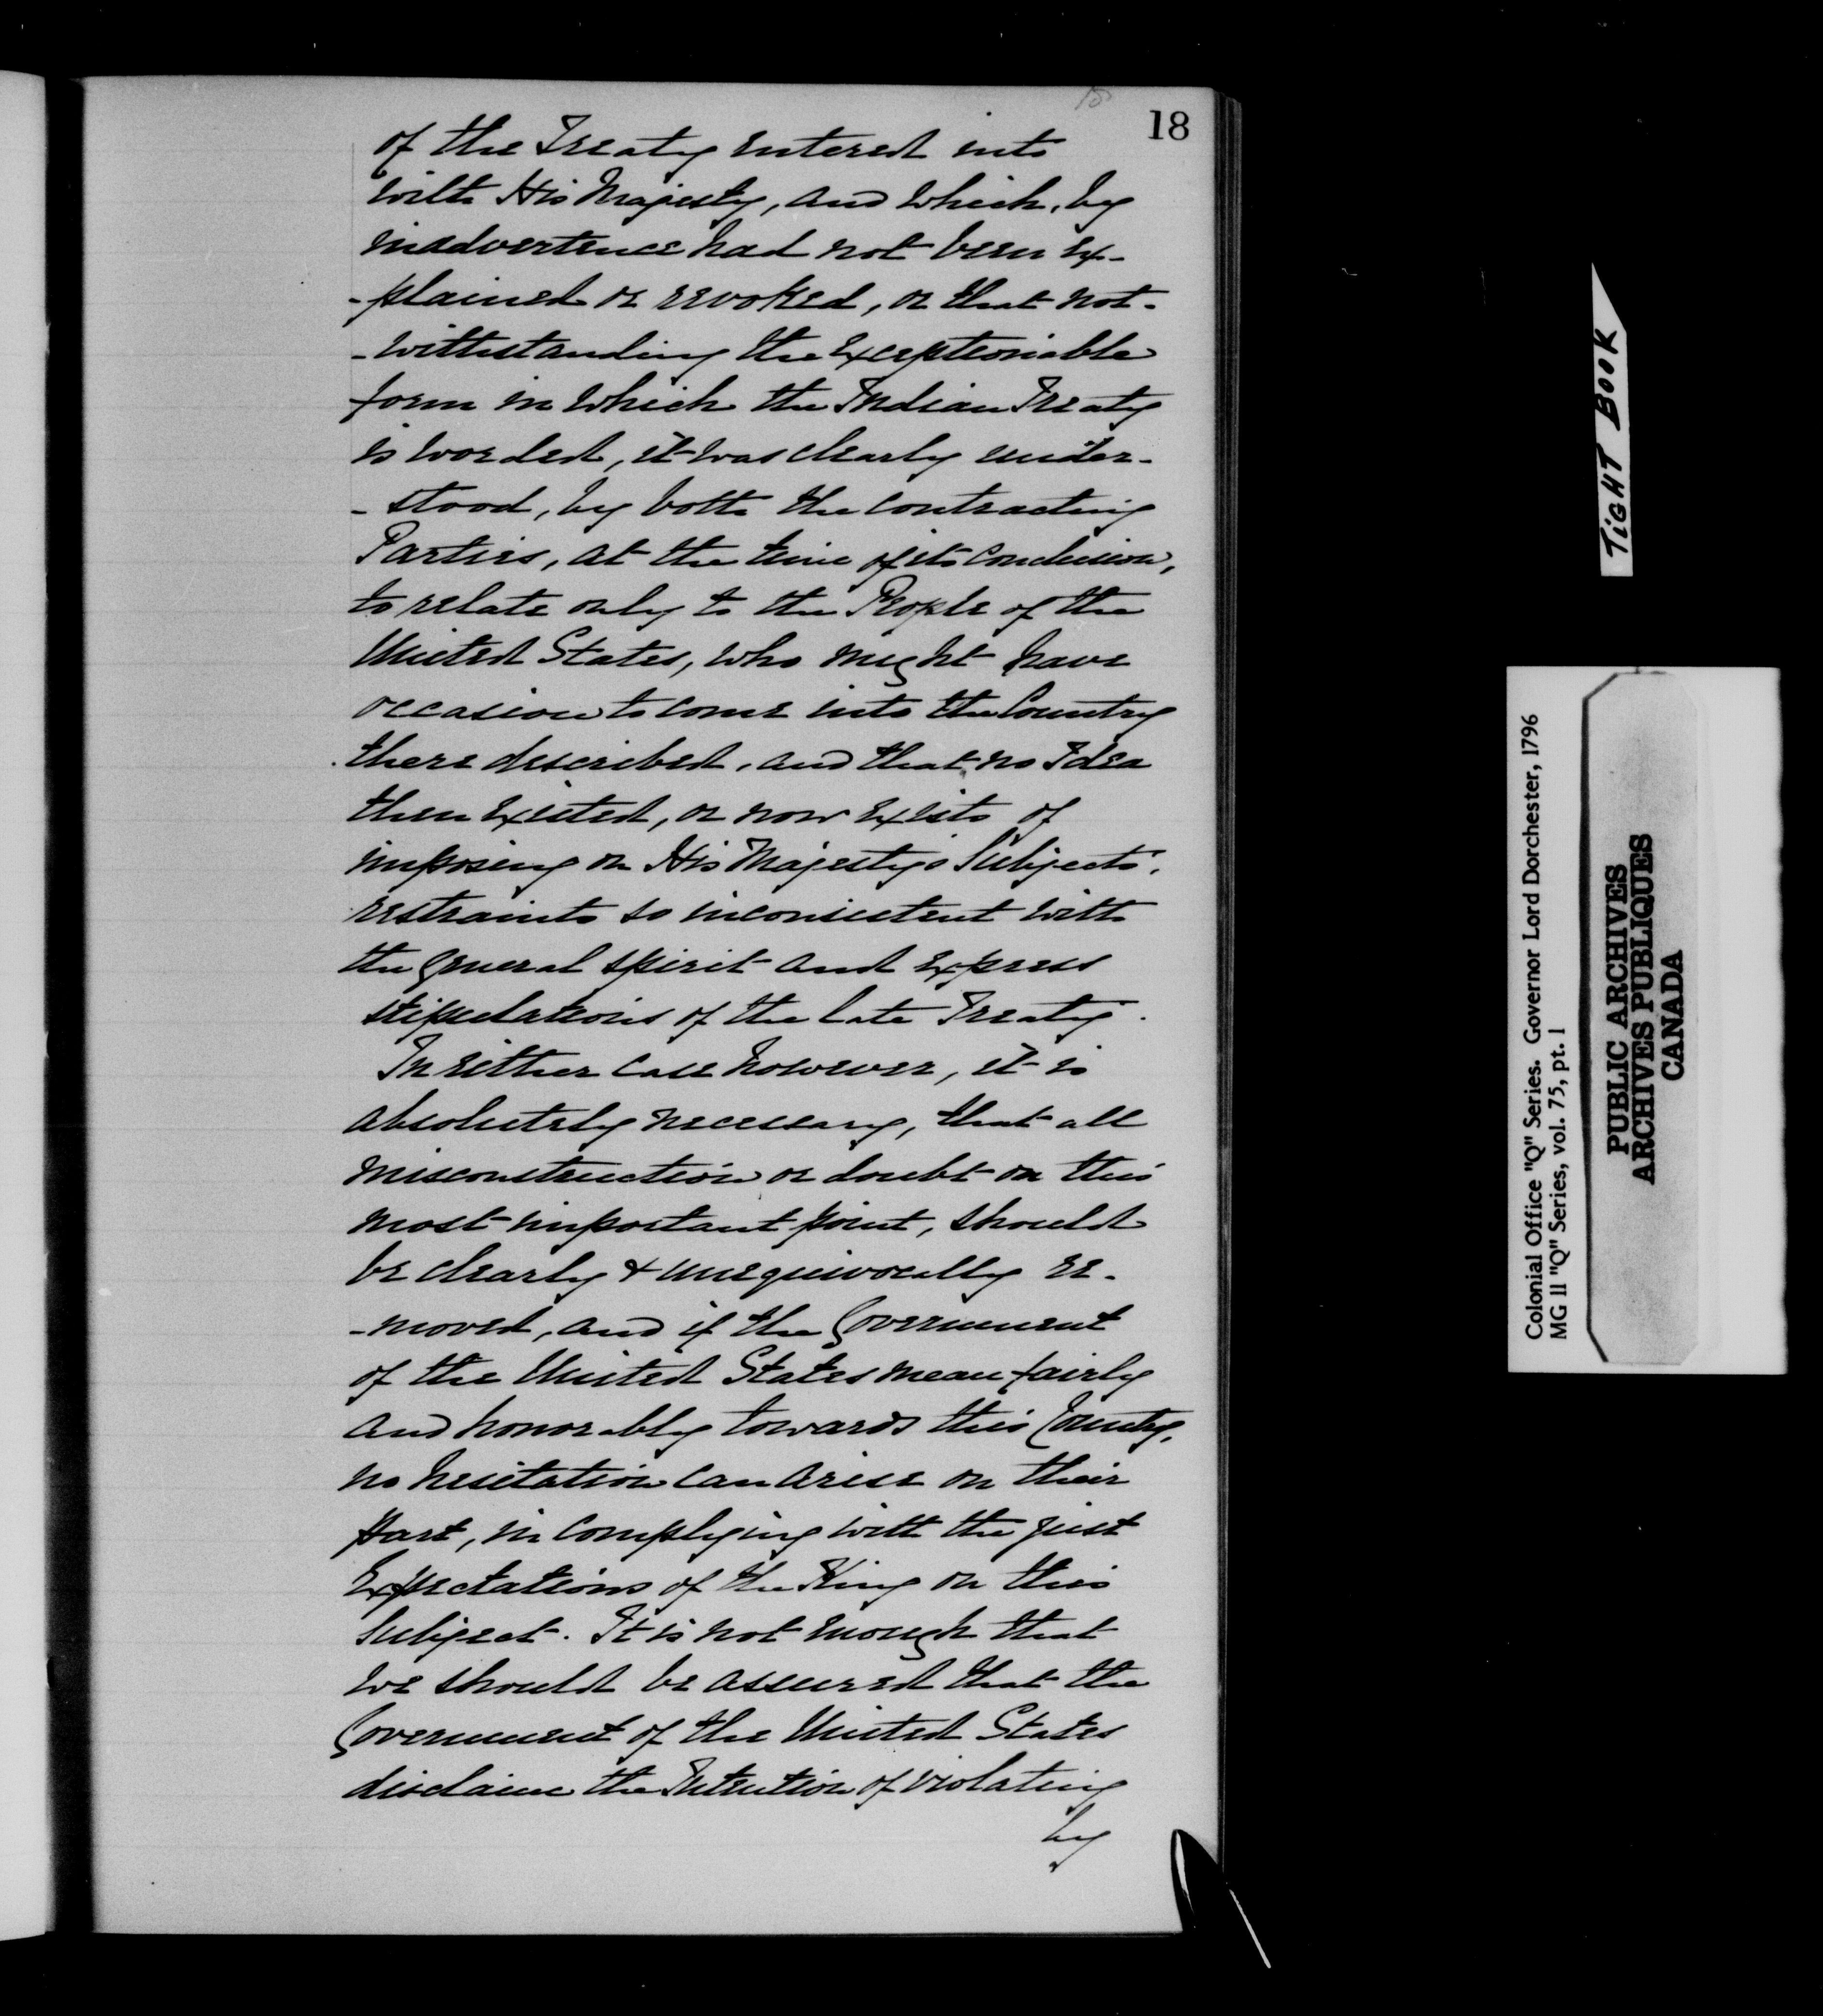 18
18
of the Treaty entered into
with His Majesty, and which, by
inadvertence had not been ex-
-plained or revoked, or that not-
-withstanding the exceptionable
form in which the Indian Treaty
is worded, it was clearly under-
-stood, by both the contracting
Parties, at the time of its conclusion,
to relate only to the People of the
United States, who might have
occasion to come into the Country
there described, and that no Idea
then existed, or now exists of
imposing on His Majestys Subjects,
restraints so inconsistent with
the general spirit and express
stipulations of the late Treaty.
In either case however, it is
absolutely necessary, that all
misconstruction or doubt on this
most important point, should
be clearly & unequivocally re-
-moved, and if the Government
of the United States mean fairly
and honorably towards this Country,
no hesitation can arise on their
part, in complying with the just
Expectations of the King on this
subject. It is not enough that
we should be assured that the
Government of the United States
disclaim the Intention of violating
by
TIGHT BOOK
Colonial Office "Q" Series. Governor Lord Dorchester, 1796
MG 11 "Q" Series, vol. 75, pt. 1
PUBLIC ARCHIVES
ARCHIVES PUBLIQUES
CANADA